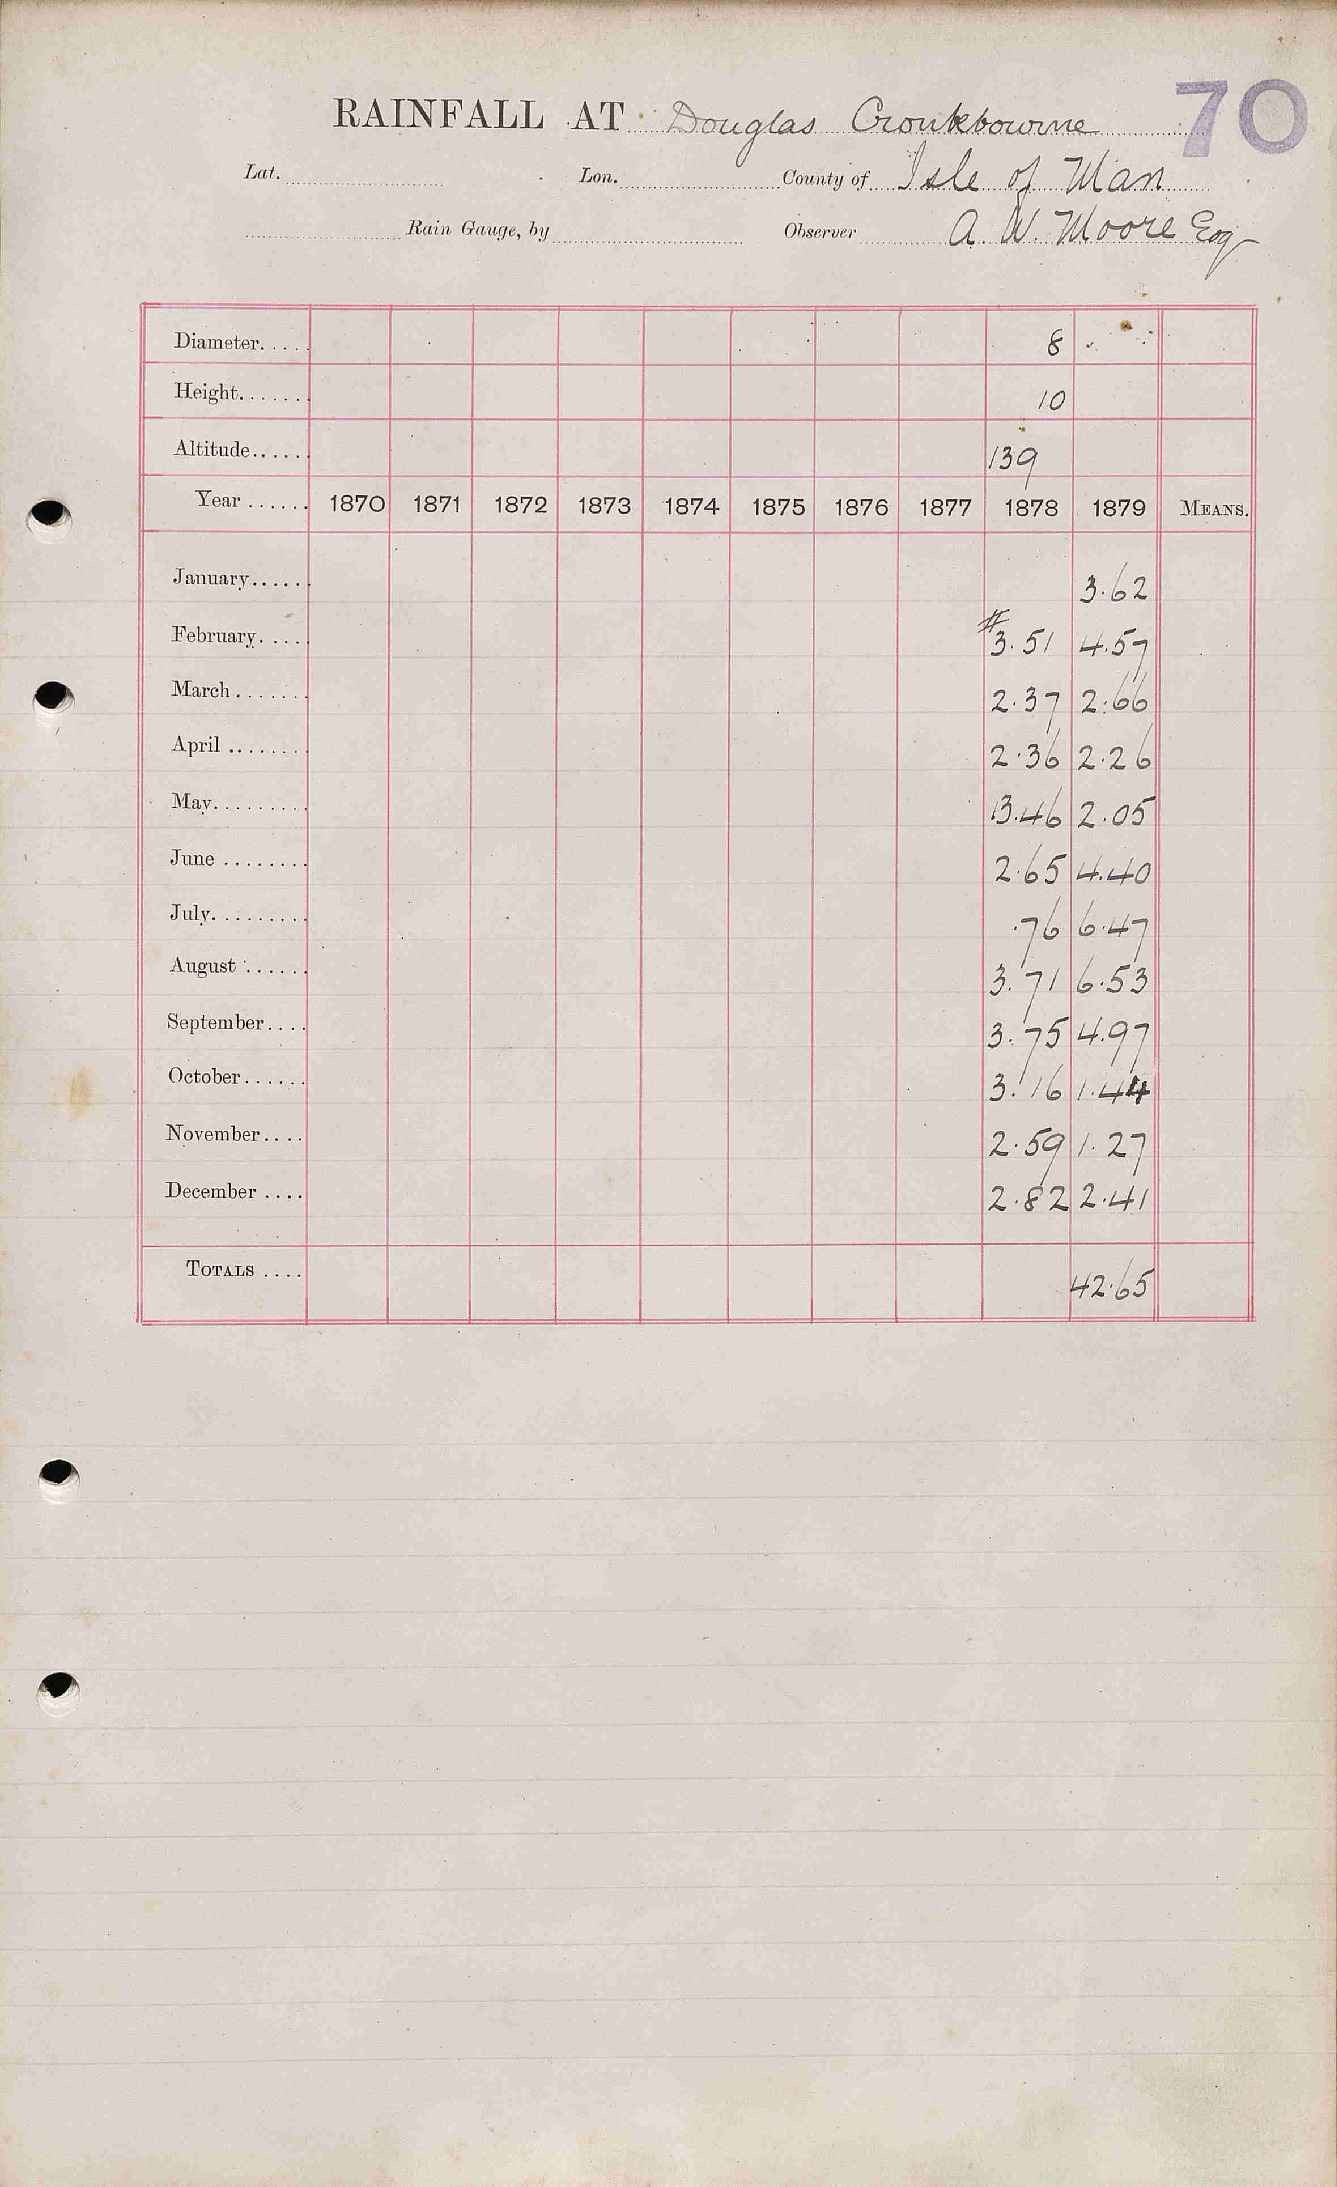 70
RAINFALL AT Douglas Cronkbourne
Lat. Lon. County of Isle of Man
Rain Gauge, by Observer A. W. Moore Esq
Diameter..... 8
Height....... 10
Altitude...... 139
Year ...... 1870 1871 1872 1873 1874 1875 1876 1877 1878 1879 MEANS.
January...... 3.62
February..... # 3.51 4.57
March ....... 2.37 2.66
April ........ 2.36 2.26
May.......... 3.46 2.05
June ........ 2.65 4.40
July.......... .76 6.47
August ...... 3.71 6.53
September.... 3.75 4.97
October...... 3.16 1.44
November.... 2.59 1.27
December .... 2.82 2.41
TOTALS .... 42.65